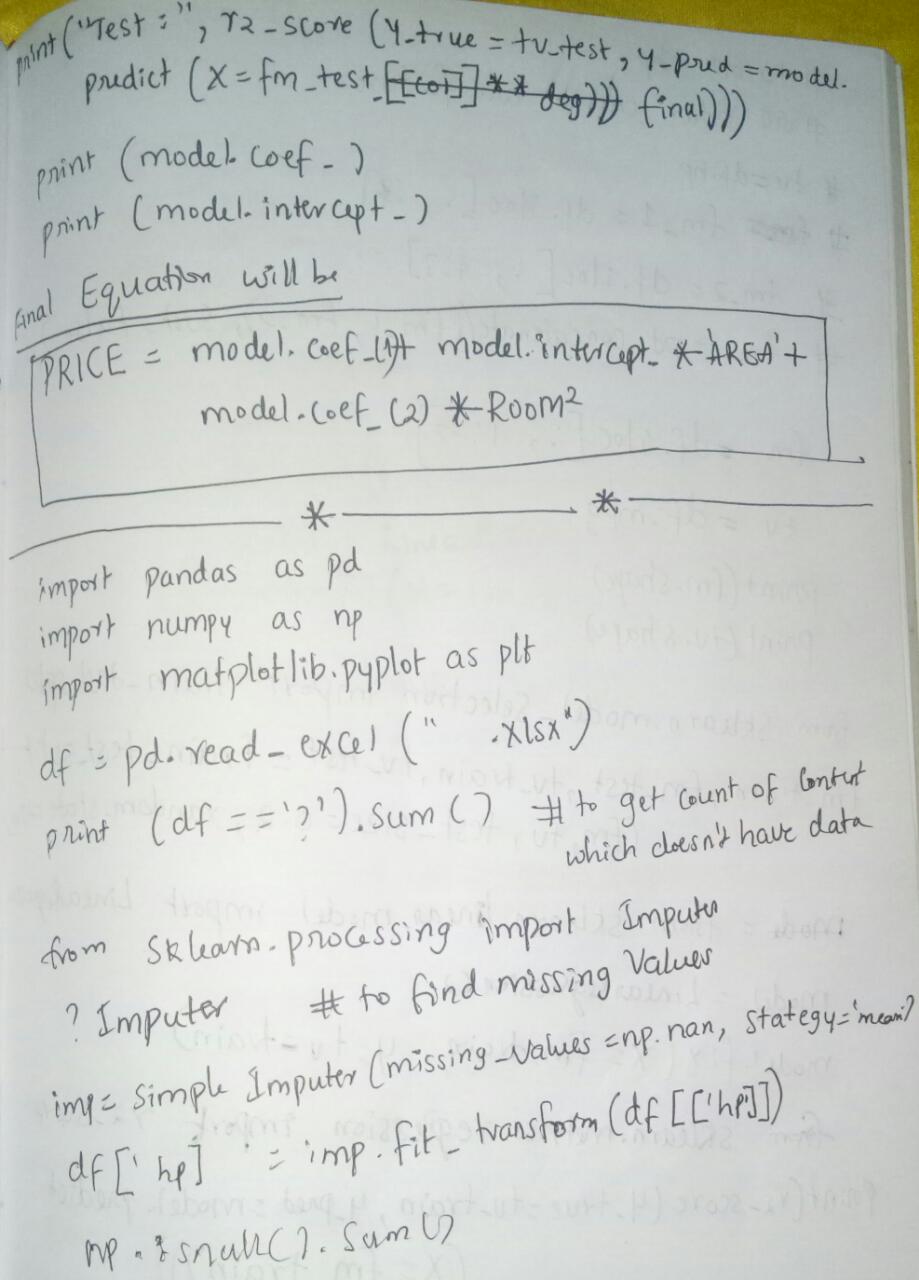 print ("Test :", r2_score (y_true = tv_test, y_pred = model.
predict (X = fm_test_[[col]] ** deg))) final)))
print (model.coef_)
print (model.intercept_)
final Equation will be
PRICE = model.coef_(1)+ model.intercept_ * 'AREA' +
model.coef_(2) * ROOM²
* *
import pandas as pd
import numpy as np
import matplotlib.pyplot as plt
df = pd.read_excel (" .xlsx")
print (df == '?').sum() # to get count of content
which doesn't have data
from sklearn.processing import Imputer
? Imputer # to find missing values
imp = Simple Imputer (missing_values = np.nan, stategy='mean')
df ['hp] ' = imp.fit_transform (df [['hp']])
np.isnull().sum()